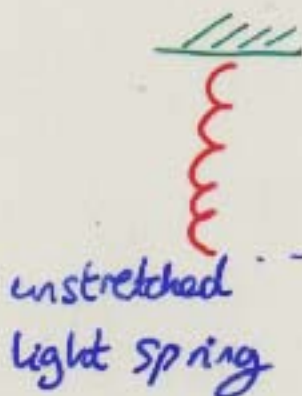 unstretched
light spring